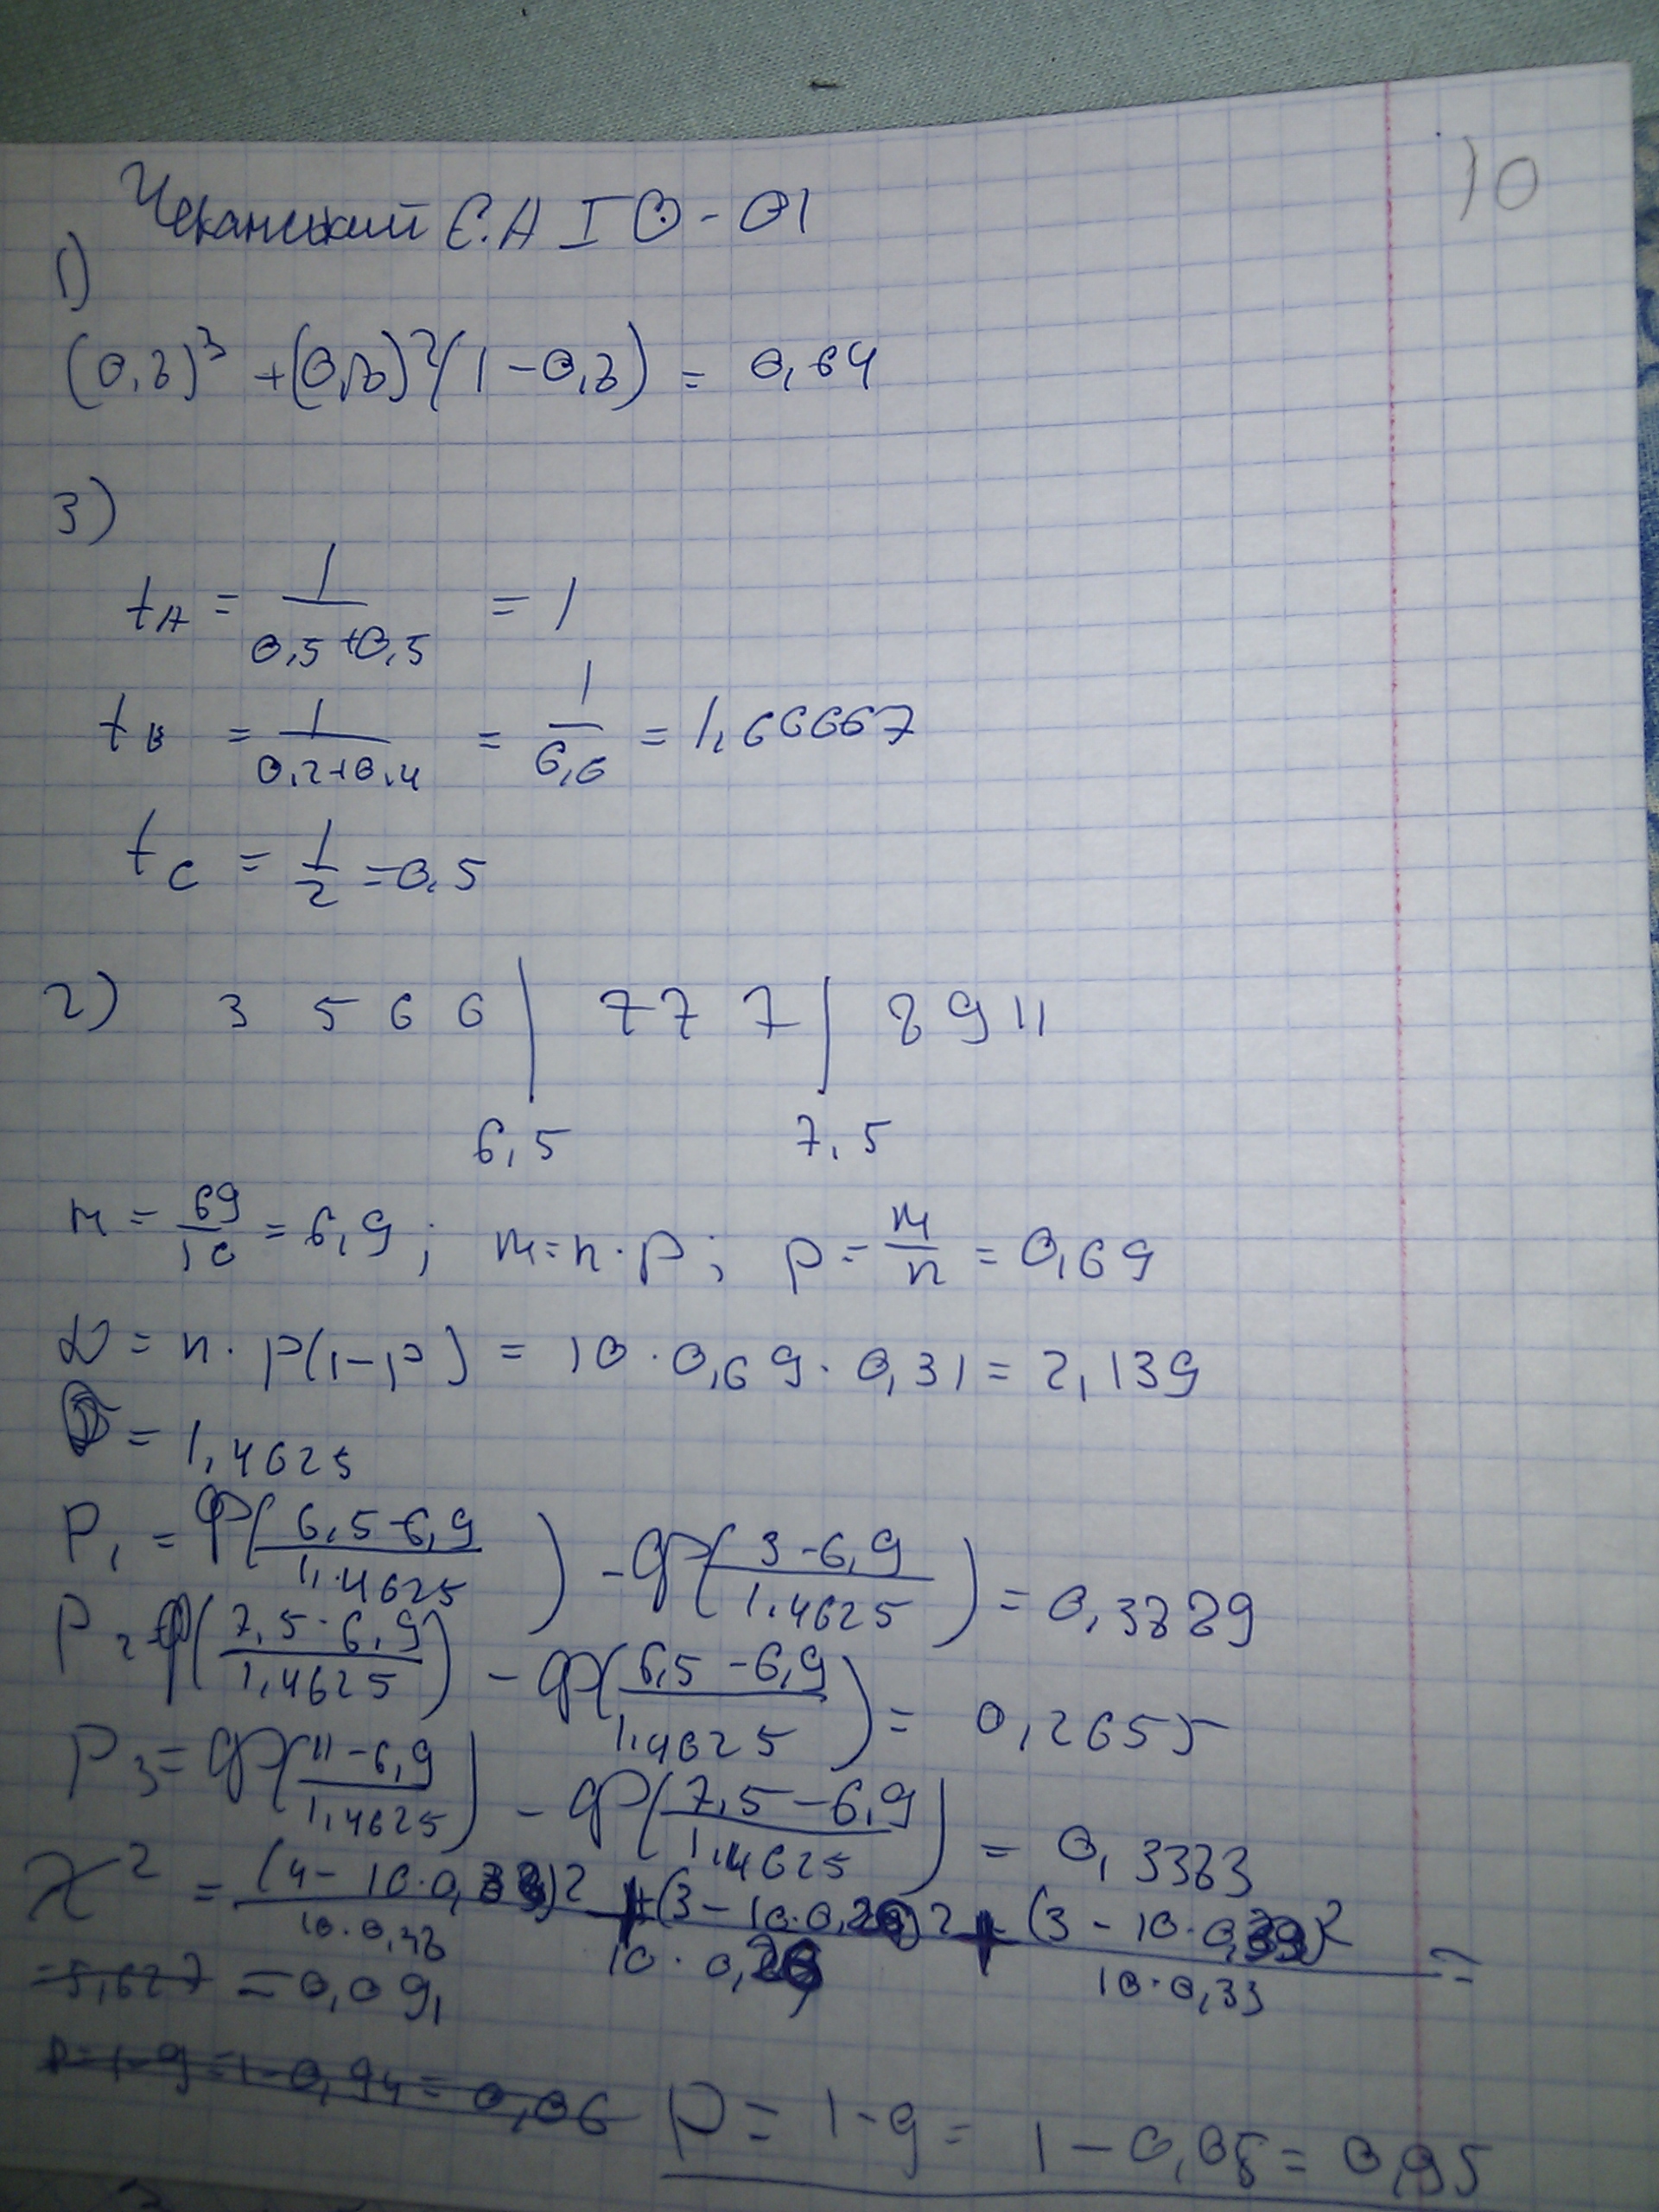 10
Чеканський Є.А ІО-01
1)
(0,8)³ + (0,8)²(1-0,8) = 0,64
3)
tA = 1/(0,5+0,5) = 1
tB = 1/(0,2+0,4) = 1/0,6 = 1,66667
tC = 1/2 = 0,5
2) 3 5 6 6 | 7 7 7 | 8 9 11
6,5 7,5
m = 69/10 = 6,9; m=n·p; p = m/n = 0,69
D = n·p(1-p) = 10·0,69·0,31 = 2,139
= 1,4625
P1 = Ф((6,5-6,9)/1,4625) - Ф((3-6,9)/1,4625) = 0,3889
P2 = Ф((7,5-6,9)/1,4625) - Ф((6,5-6,9)/1,4625) = 0,2655
P3 = Ф((11-6,9)/1,4625) - Ф((7,5-6,9)/1,4625) = 0,3383
χ² = (4-10·0,38)²/(10·0,38) + (3-10·0,26)²/(10·0,26) + (3-10·0,33)²/(10·0,33) =
=5,627 = 0,09,
p=1-q=1-0,94=0,06 p = 1-q = 1-0,05 = 0,95